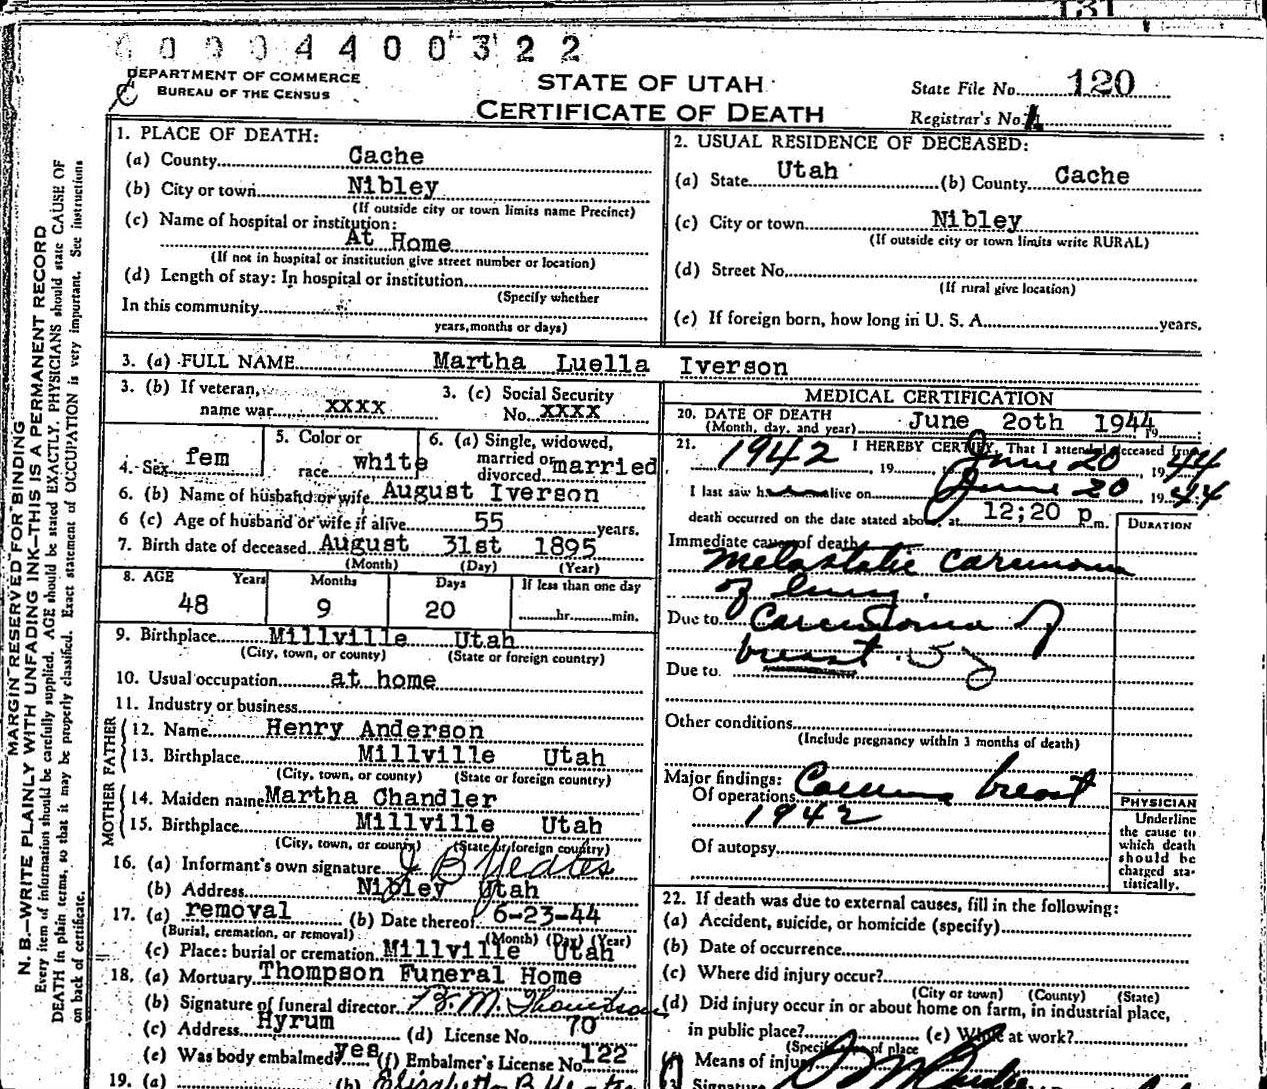 131
0 0 0 4 4 0 0 3 2 2
DEPARTMENT OF COMMERCE
BUREAU OF THE CENSUS
STATE OF UTAH
CERTIFICATE OF DEATH
State File No. 120
Registrar's No.
MARGIN RESERVED FOR BINDING
N. B.—WRITE PLAINLY WITH UNFADING INK—THIS IS A PERMANENT RECORD
Every item of information should be carefully supplied. AGE should be stated EXACTLY. PHYSICIANS should state CAUSE OF
DEATH in plain terms, so that it may be properly classified. Exact statement of OCCUPATION is very important. See instructions
on back of certificate.
1. PLACE OF DEATH:
(a) County Cache
(b) City or town Nibley
(If outside city or town limits name Precinct)
(c) Name of hospital or institution:
At Home
(If not in hospital or institution give street number or location)
(d) Length of stay: In hospital or institution
(Specify whether
In this community
years, months or days)
2. USUAL RESIDENCE OF DECEASED:
(a) State Utah (b) County Cache
(c) City or town Nibley
(If outside city or town limits write RURAL)
(d) Street No.
(If rural give location)
(e) If foreign born, how long in U. S. A. years.
3. (a) FULL NAME Martha Luella Iverson
3. (b) If veteran, name war xxxx
3. (c) Social Security No. xxxx
4. Sex fem
5. Color or race white
6. (a) Single, widowed, married or divorced married
6. (b) Name of husband or wife August Iverson
6 (c) Age of husband or wife if alive 55 years.
7. Birth date of deceased August 31st 1895
(Month) (Day) (Year)
8. AGE Years Months Days If less than one day
48 9 20 hr. min.
9. Birthplace Millville Utah
(City, town, or county) (State or foreign country)
10. Usual occupation at home
11. Industry or business
FATHER
12. Name Henry Anderson
13. Birthplace Millville Utah
(City, town, or county) (State or foreign country)
MOTHER
14. Maiden name Martha Chandler
15. Birthplace Millville Utah
(City, town, or county) (State or foreign country)
16. (a) Informant's own signature J B Yeates
(b) Address Nibley Utah
17. (a) removal (b) Date thereof 6-23-44
(Burial, cremation, or removal) (Month) (Day) (Year)
(c) Place: burial or cremation Millville Utah
18. (a) Mortuary Thompson Funeral Home
(b) Signature of funeral director M. Thompson
(c) Address Hyrum (d) License No. 70
(e) Was body embalmed? yes (f) Embalmer's License No. 122
19. (a) (b) Elizabeth B Yeates
MEDICAL CERTIFICATION
20. DATE OF DEATH
(Month, day, and year) June 2oth 1944 19
21. I HEREBY CERTIFY, That I attended deceased from
1942 19 June 20 19 44
I last saw h alive on June 20 19 44
death occurred on the date stated above, at 12;20 p m.
DURATION
Immediate cause of death
metastatic carcinoma
of lung.
Due to Carcinoma of
breast.
Due to
Other conditions
(Include pregnancy within 3 months of death)
Major findings:
Of operations Carcinoma breast
1942
Of autopsy
PHYSICIAN
Underline
the cause to
which death
should be
charged sta-
tistically.
22. If death was due to external causes, fill in the following:
(a) Accident, suicide, or homicide (specify)
(b) Date of occurrence
(c) Where did injury occur?
(City or town) (County) (State)
(d) Did injury occur in or about home on farm, in industrial place,
in public place? (e) While at work?
(Specify of place
Means of injury
Signature